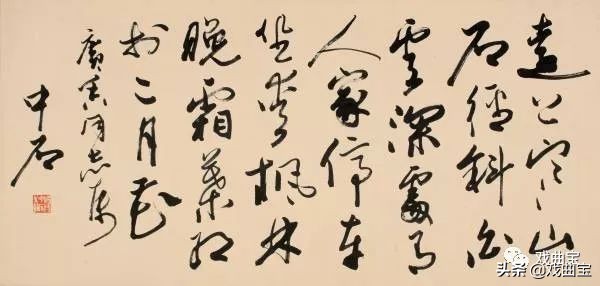 遠上寒山
石徑斜白
雲深處有
人家停車
坐愛楓林
晚霜葉紅
於二月花
廣 同志屬
中石
戏曲宝
头条@戏曲宝